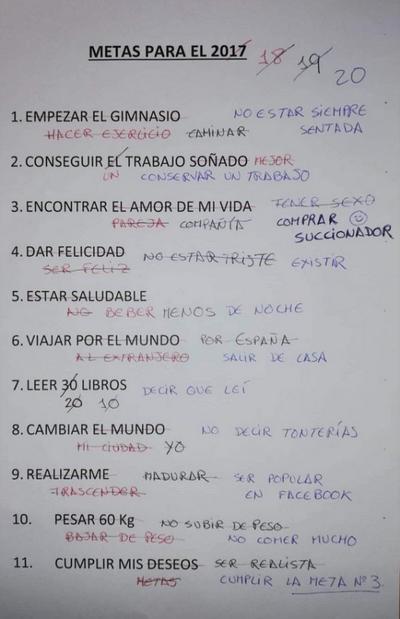 METAS PARA EL 2017 18 19 20
1. EMPEZAR EL GIMNASIO NO ESTAR SIEMPRE
HACER EJERCICIO CAMINAR SENTADA
2. CONSEGUIR EL TRABAJO SOÑADO MEJOR
UN CONSERVAR UN TRABAJO
3. ENCONTRAR EL AMOR DE MI VIDA TENER SEXO
PAREJA COMPAÑÍA COMPRAR
SUCCIONADOR
4. DAR FELICIDAD NO ESTAR TRISTE EXISTIR
SER FELIZ
5. ESTAR SALUDABLE
NO BEBER MENOS DE NOCHE
6. VIAJAR POR EL MUNDO POR ESPAÑA
AL EXTRANJERO SALIR DE CASA
7. LEER 30 LIBROS DECIR QUE LEÍ
20 10
8. CAMBIAR EL MUNDO NO DECIR TONTERÍAS
MI CIUDAD YO
9. REALIZARME MADURAR SER POPULAR
TRASCENDER EN FACEBOOK
10. PESAR 60 Kg NO SUBIR DE PESO
BAJAR DE PESO NO COMER MUCHO
11. CUMPLIR MIS DESEOS SER REALISTA
METAS CUMPLIR LA META Nº 3